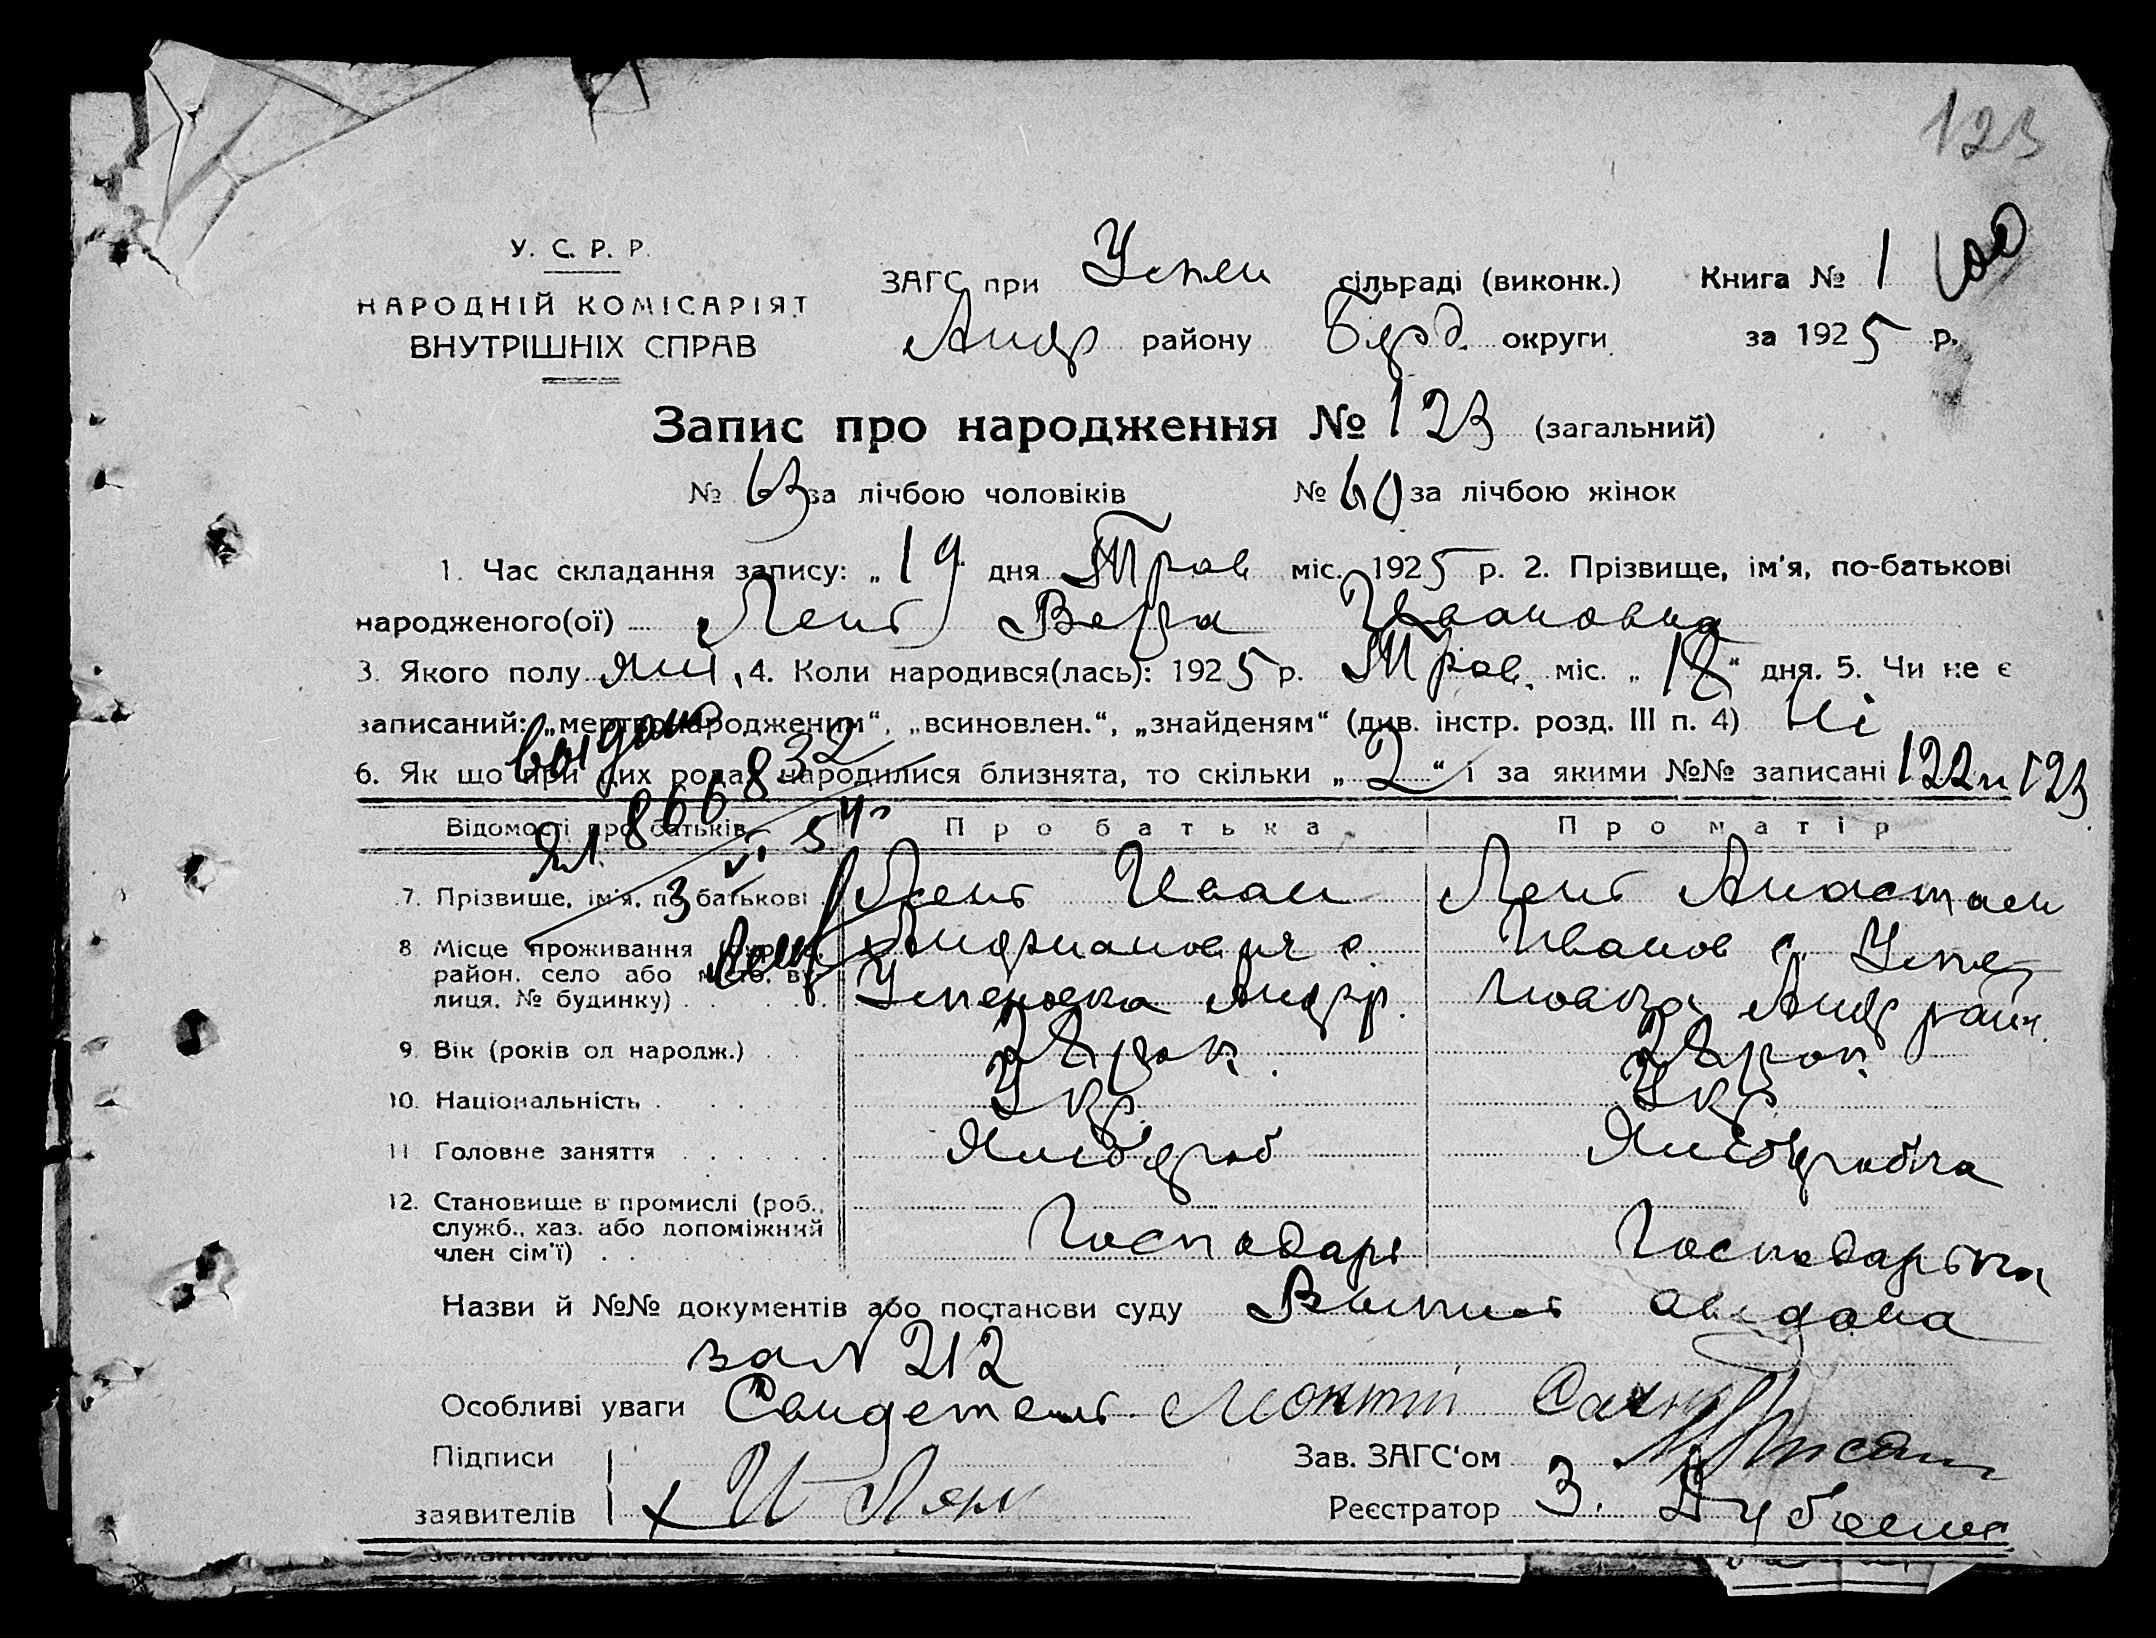 123
У. С. Р. Р.
НАРОДНІЙ КОМІСАРІЯТ
ВНУТРІШНІХ СПРАВ
ЗАГС при Успен сільраді (виконк.) Книга № 1
Андр району Берд. округи за 1925 р.
Запис про народження № 123 (загальний)
№ 63 за лічбою чоловіків № 60 за лічбою жінок
1. Час складання запису: „19 дня Трав міс. 1925 р. 2. Прізвище, ім'я, по-батькові
народженого(ої) Лент Вера Ивановна
3. Якого полу жін, 4. Коли народився(лась): 1925 р. Трав. міс. „18“ дня. 5. Чи не є
записаний: „мертвонародженим“, „всиновлен.“, „знайденям“ (див. інстр. розд. III п. 4) Ні
6. Як що при цих родах народилися близнята, то скільки „2“ і за якими №№ записані 122 и 123
Відомості про батьків Про батька Про матір
7. Прізвище, ім'я, по батькові Лент Иван Лент Анастаси
8 Місце проживання район, село або місто, вулиця, № будинку) Андрианович с. Успеновка Андр р. Иванов с. Успеновка Андр район
9. Вік (років од народж.) 28 рок. 28 рок.
10. Національність Укр. Укр.
11 Головне заняття Хлібороб Хліборобка
12. Становище в промислі (роб., служб., хаз. або допоміжний член сім'ї) Господарь Господарька
Назви й №№ документів або постанови суду
за № 212
Особливі уваги Свидетель
Підписи
заявителів
Зав. ЗАГС'ом
Реєстратор З.